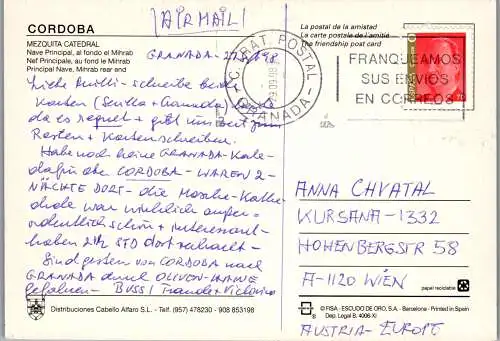 AIRMAIL
CORDOBA
MEZQUITA CATEDRAL
Nave Principal, al fondo el Mihrab
Nef Principale, au fond le Mihrab
Principal Nave, Mihrab rear end
GRANADA - 98
schreibe beide
Karten (Sevilla + Granada)
da es regnet + gibt uns Zeit zum
Rasten + Kartenschreiben.
Habe noch keine GRANADA-Karte
dafür CORDOBA - WAREN 2
NÄCHTE DORT - die Moschee-Kathe-
drale war wirklich außer-
ordentlich schön + interessant
haben 2½ STD dort verbracht -
Sind gestern von CORDOBA nach
GRANADA durch OLIVEN-HAINE
gefahren - BUSSI
Distribuciones Cabello Alfaro S.L. - Telf. (957) 478230 - 908 853198
La postal de la amistad
La carte postale de l'amitié
The friendship post card
POSTAL
GRANADA
FRANQUEAMOS
SUS ENVIOS
EN CORREOS
70
ANNA CHVATAL
KURSANA - 1332
HOHENBERGSTR 58
A-1120 WIEN
papel reciclable
© FISA - ESCUDO DE ORO, S.A. - Barcelona - Printed in Spain
Dep. Legal B. 4006 XI
AUSTRIA - EUROPE